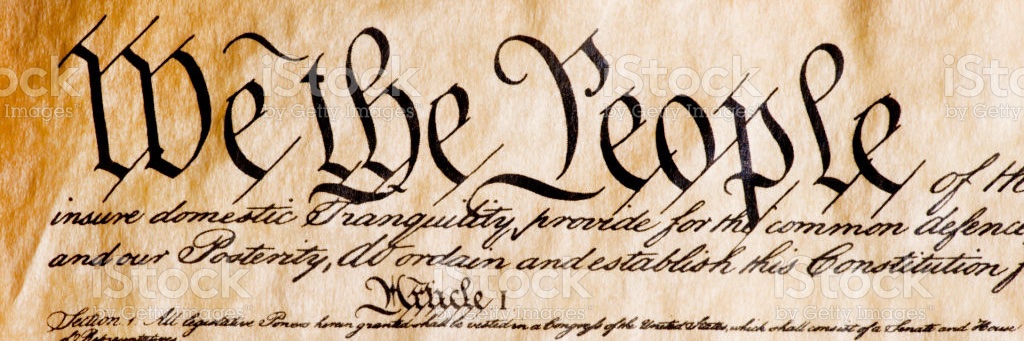 We the People of the
insure domestic Tranquility, provide for the common defence,
and our Posterity, do ordain and establish this Constitution f
Article I
Section 1 All legislative Powers herein granted shall be vested in a Congress of the United States, which shall consist of a Senate and House
of Representatives.
iStock
by Getty Images
iStock
by Getty Images
iStock
by Getty Images
iStock
by Getty Images
iStock
by Getty Images
iStock
by Getty Images
iStock
by Getty Images